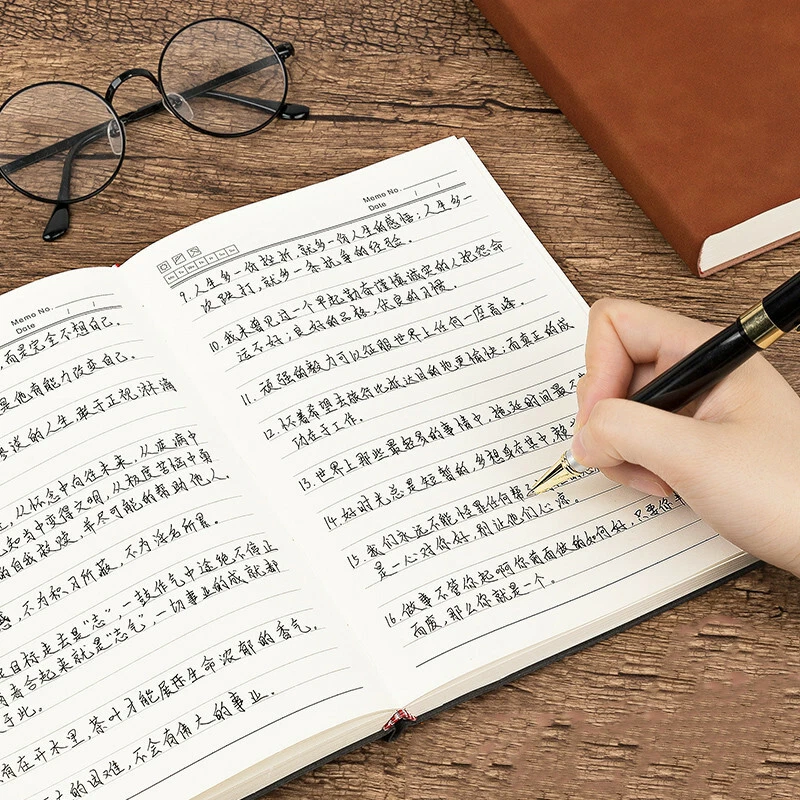 Memo No.
Date / /
，而是完全不想自己。
是他有能力改变自己。
的人生，敢于正视淋漓
从怀念中向往未来，从疲满中
中变得文明，从极度苦恼中勇
的自我救赎，并尽可能的帮助他人。
不为积习所蔽，不为浮名所累。
目标走去是"志"，一鼓作气中途绝不停止
两者合起来就是"志气"，一切事业的成就都
于此。
在开水里，茶叶才能展开生命浓郁的香气。
的困难，不会有伟大的事业。
Memo No.
Date / /
9. 人生多一份挫折，就多一份人生的感悟；人生多一
次跌打，就多一条抗争的经验。
10. 我未曾见过一个早起勤奋谨慎诚实的人抱怨命
运不好；良好的品格，优良的习惯。
11. 顽强的毅力可以征服世界上任何一座高峰。
12. 怀着希望去旅行比抵达目的地更愉快；而真正的成
功在于工作。
13. 世界上那些最容易的事情中，拖延时间最不
14. 好时光总是短暂的，多想或在其中
15. 我们永远不能怪罪任何帮
是一心对你好，别让他们心凉。
16. 做事不管你起啊你前面做的如何好，只要你半
而废，那么你就是一个。